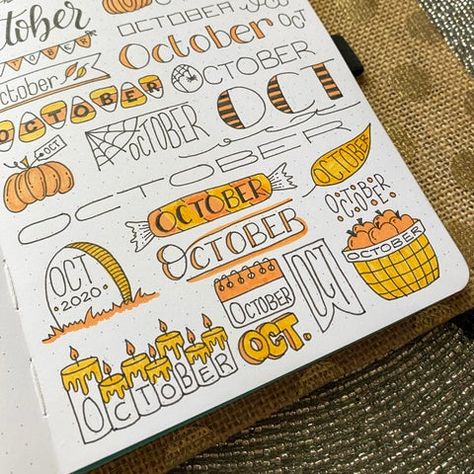 October
OCTOBER
OCTOBER
OCT
October
OCTOBER
October
OCTOBER
OCTOBER
OCT
OCT!
OCTOBER
OCTOBER
OCTOBER
OCTOBER
OCTOBER
OCTOBER
OCTOBER
OCTOBER
OCT
2020
OCTOBER
OCT
OCTOBER
OCT.